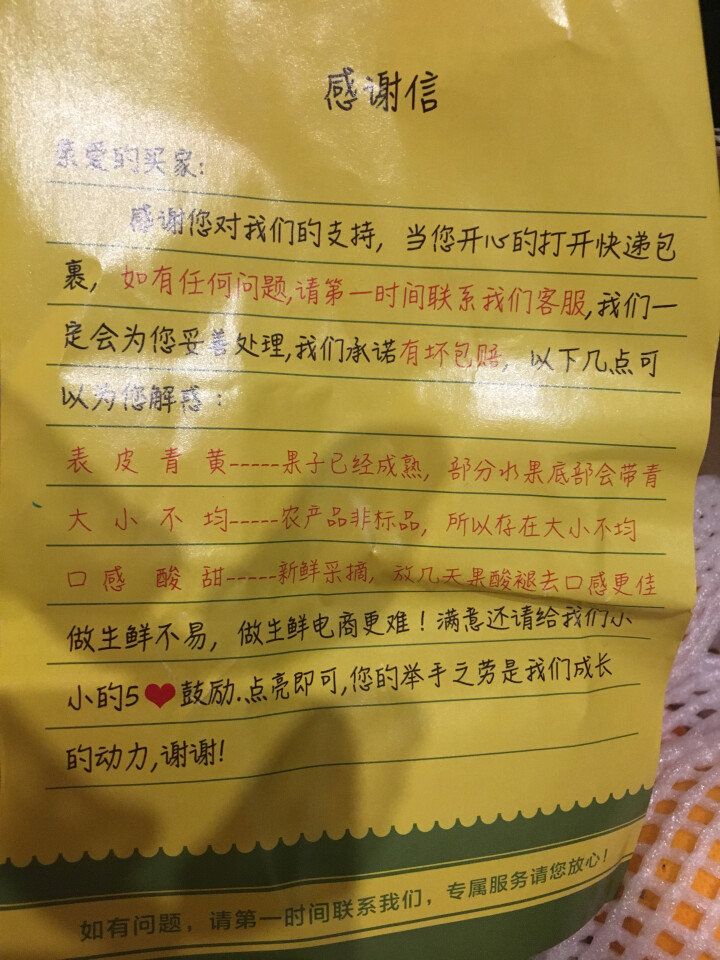 感谢信
亲爱的买家:
感谢您对我们的支持, 当您开心的打开快递包
裹, 如有任何问题,请第一时间联系我们客服,我们一
定会为您妥善处理,我们承诺有坏包赔, 以下几点可
以为您解惑:
表皮青黄-----果子已经成熟, 部分水果底部会带青
大小不均-----农产品非标品, 所以存在大小不均
口感酸甜-----新鲜采摘, 放几天果酸褪去口感更佳
做生鲜不易, 做生鲜电商更难!满意还请给我们小
小的5❤鼓励.点亮即可,您的举手之劳是我们成长
的动力,谢谢!
如有问题, 请第一时间联系我们, 专属服务请您放心!